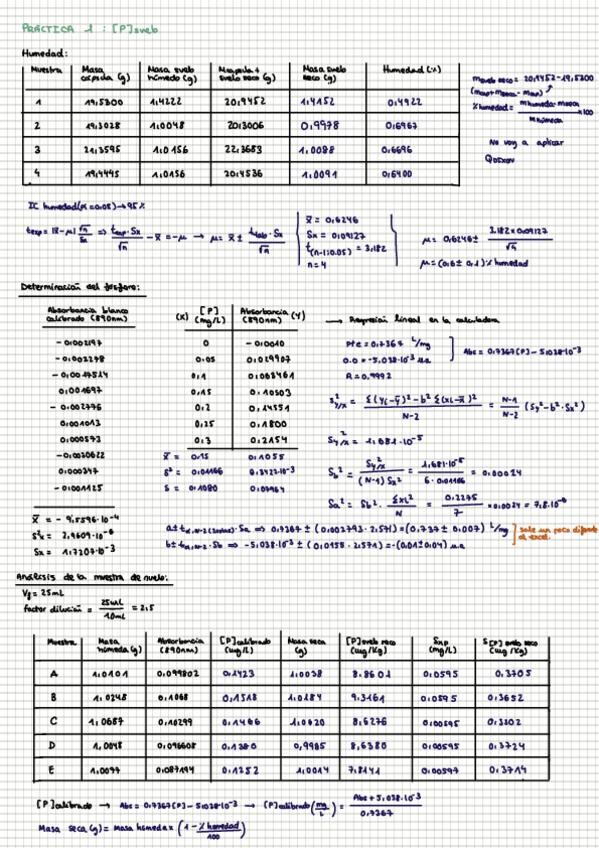 PRÁCTICA 1 : [P]suelo
Humedad:
Muestra | Masa cápsula (g) | Masa suelo húmedo (g) | Mcápsula + suelo seco (g) | Masa suelo seco (g) | Humedad (%)
1 | 19,5300 | 1,4222 | 20,9452 | 1,4152 | 0,4922
2 | 19,3028 | 1,0048 | 20,3006 | 0,9978 | 0,6967
3 | 21,3595 | 1,0156 | 22,3683 | 1,0088 | 0,6696
4 | 19,4445 | 1,0156 | 20,4536 | 1,0091 | 0,6400
msuelo seco = 20,9452 - 19,5300
% humedad = mhúmeda - mseca / mhúmeda x100
No voy a aplicar
Qdixon
IC humedad (α=0,05) → 95%
texp = |x̄ - μ| √n / Sx ⇒ texp · Sx / √n - x̄ = -μ → μ = x̄ ± ttab · Sx / √n
x̄ = 0,6246
Sx = 0,09127
t(n-1; 0,05) = 3,182
n = 4
μ = 0,6246 ± 3,182 × 0,09127 / √4
μ = (0,6 ± 0,1) % humedad
Determinación del fósforo:
Absorbancia blanco calibrado (890nm)
-0,002197
-0,002278
-0,0017514
0,001697
-0,002776
0,001013
0,000573
-0,0020622
0,000347
-0,001125
x̄ = -9,5596·10⁻⁴
S²x = 2,9609·10⁻⁶
Sx = 1,7207·10⁻³
(X) [P] (mg/L) | Absorbancia (Y) (890nm)
0 | -0,0010
0,05 | 0,029907
0,1 | 0,068464
0,15 | 0,10503
0,2 | 0,14551
0,25 | 0,1800
0,3 | 0,2154
x̄ = 0,15 | 0,1055
S² = 0,01166
S = 0,1080 | 0,07964
→ Regresión lineal en la calculadora
Pte = 0,7367 L/mg
O.O = -5,038·10⁻³ u.a
R = 0,9992
Abs = 0,7367[P] - 5,038·10⁻³
S²y/x = Σ(yi - ȳ)² - b² Σ(xi - x̄)² / N-2 = N-1 / N-2 (Sy² - b² · Sx²)
S²y/x = 1,681·10⁻⁵
Sb² = S²y/x / (N-1) Sx² = 1,681·10⁻⁵ / 6 · 0,01166 = 0,00024
Sa² = Sb² · Σxi² / N = 0,2275 / 7 · 0,0024 = 7,8·10⁻⁶
⇒ 0,7367 ± (0,002793 · 2,571) = (0,737 ± 0,007) L/mg
⇒ -5,038·10⁻³ ± (0,0155 · 2,571) = -(0,01 ± 0,04) u.a
sale un poco diferente al excel.
Análisis de la muestra de suelo:
Vf = 25mL
factor dilución = 25mL / 10mL = 2,5
Muestra | Masa húmeda (g) | Absorbancia (890nm) | [P]calibrado (mg/L) | Masa seca (g) | [P]suelo seco (mg/Kg) | Sxp (mg/L) | S[P] suelo seco (mg/Kg)
A | 1,0101 | 0,099802 | 0,1423 | 1,0038 | 8,8601 | 0,0595 | 0,3705
B | 1,0248 | 0,1068 | 0,1518 | 1,0184 | 9,3161 | 0,0595 | 0,3652
C | 1,0687 | 0,10299 | 0,1466 | 1,0620 | 8,6276 | 0,00595 | 0,3502
D | 1,0048 | 0,096608 | 0,1380 | 0,9985 | 8,6380 | 0,00595 | 0,3724
E | 1,0077 | 0,087194 | 0,1252 | 1,0014 | 7,8141 | 0,00597 | 0,3714
[P]calibrado → Abs = 0,7367[P] - 5,038·10⁻³ → [P]calibrado (mg/L) = Abs + 5,038·10⁻³ / 0,7367
Masa seca (g) = Masa húmeda × (1 - % humedad / 100)